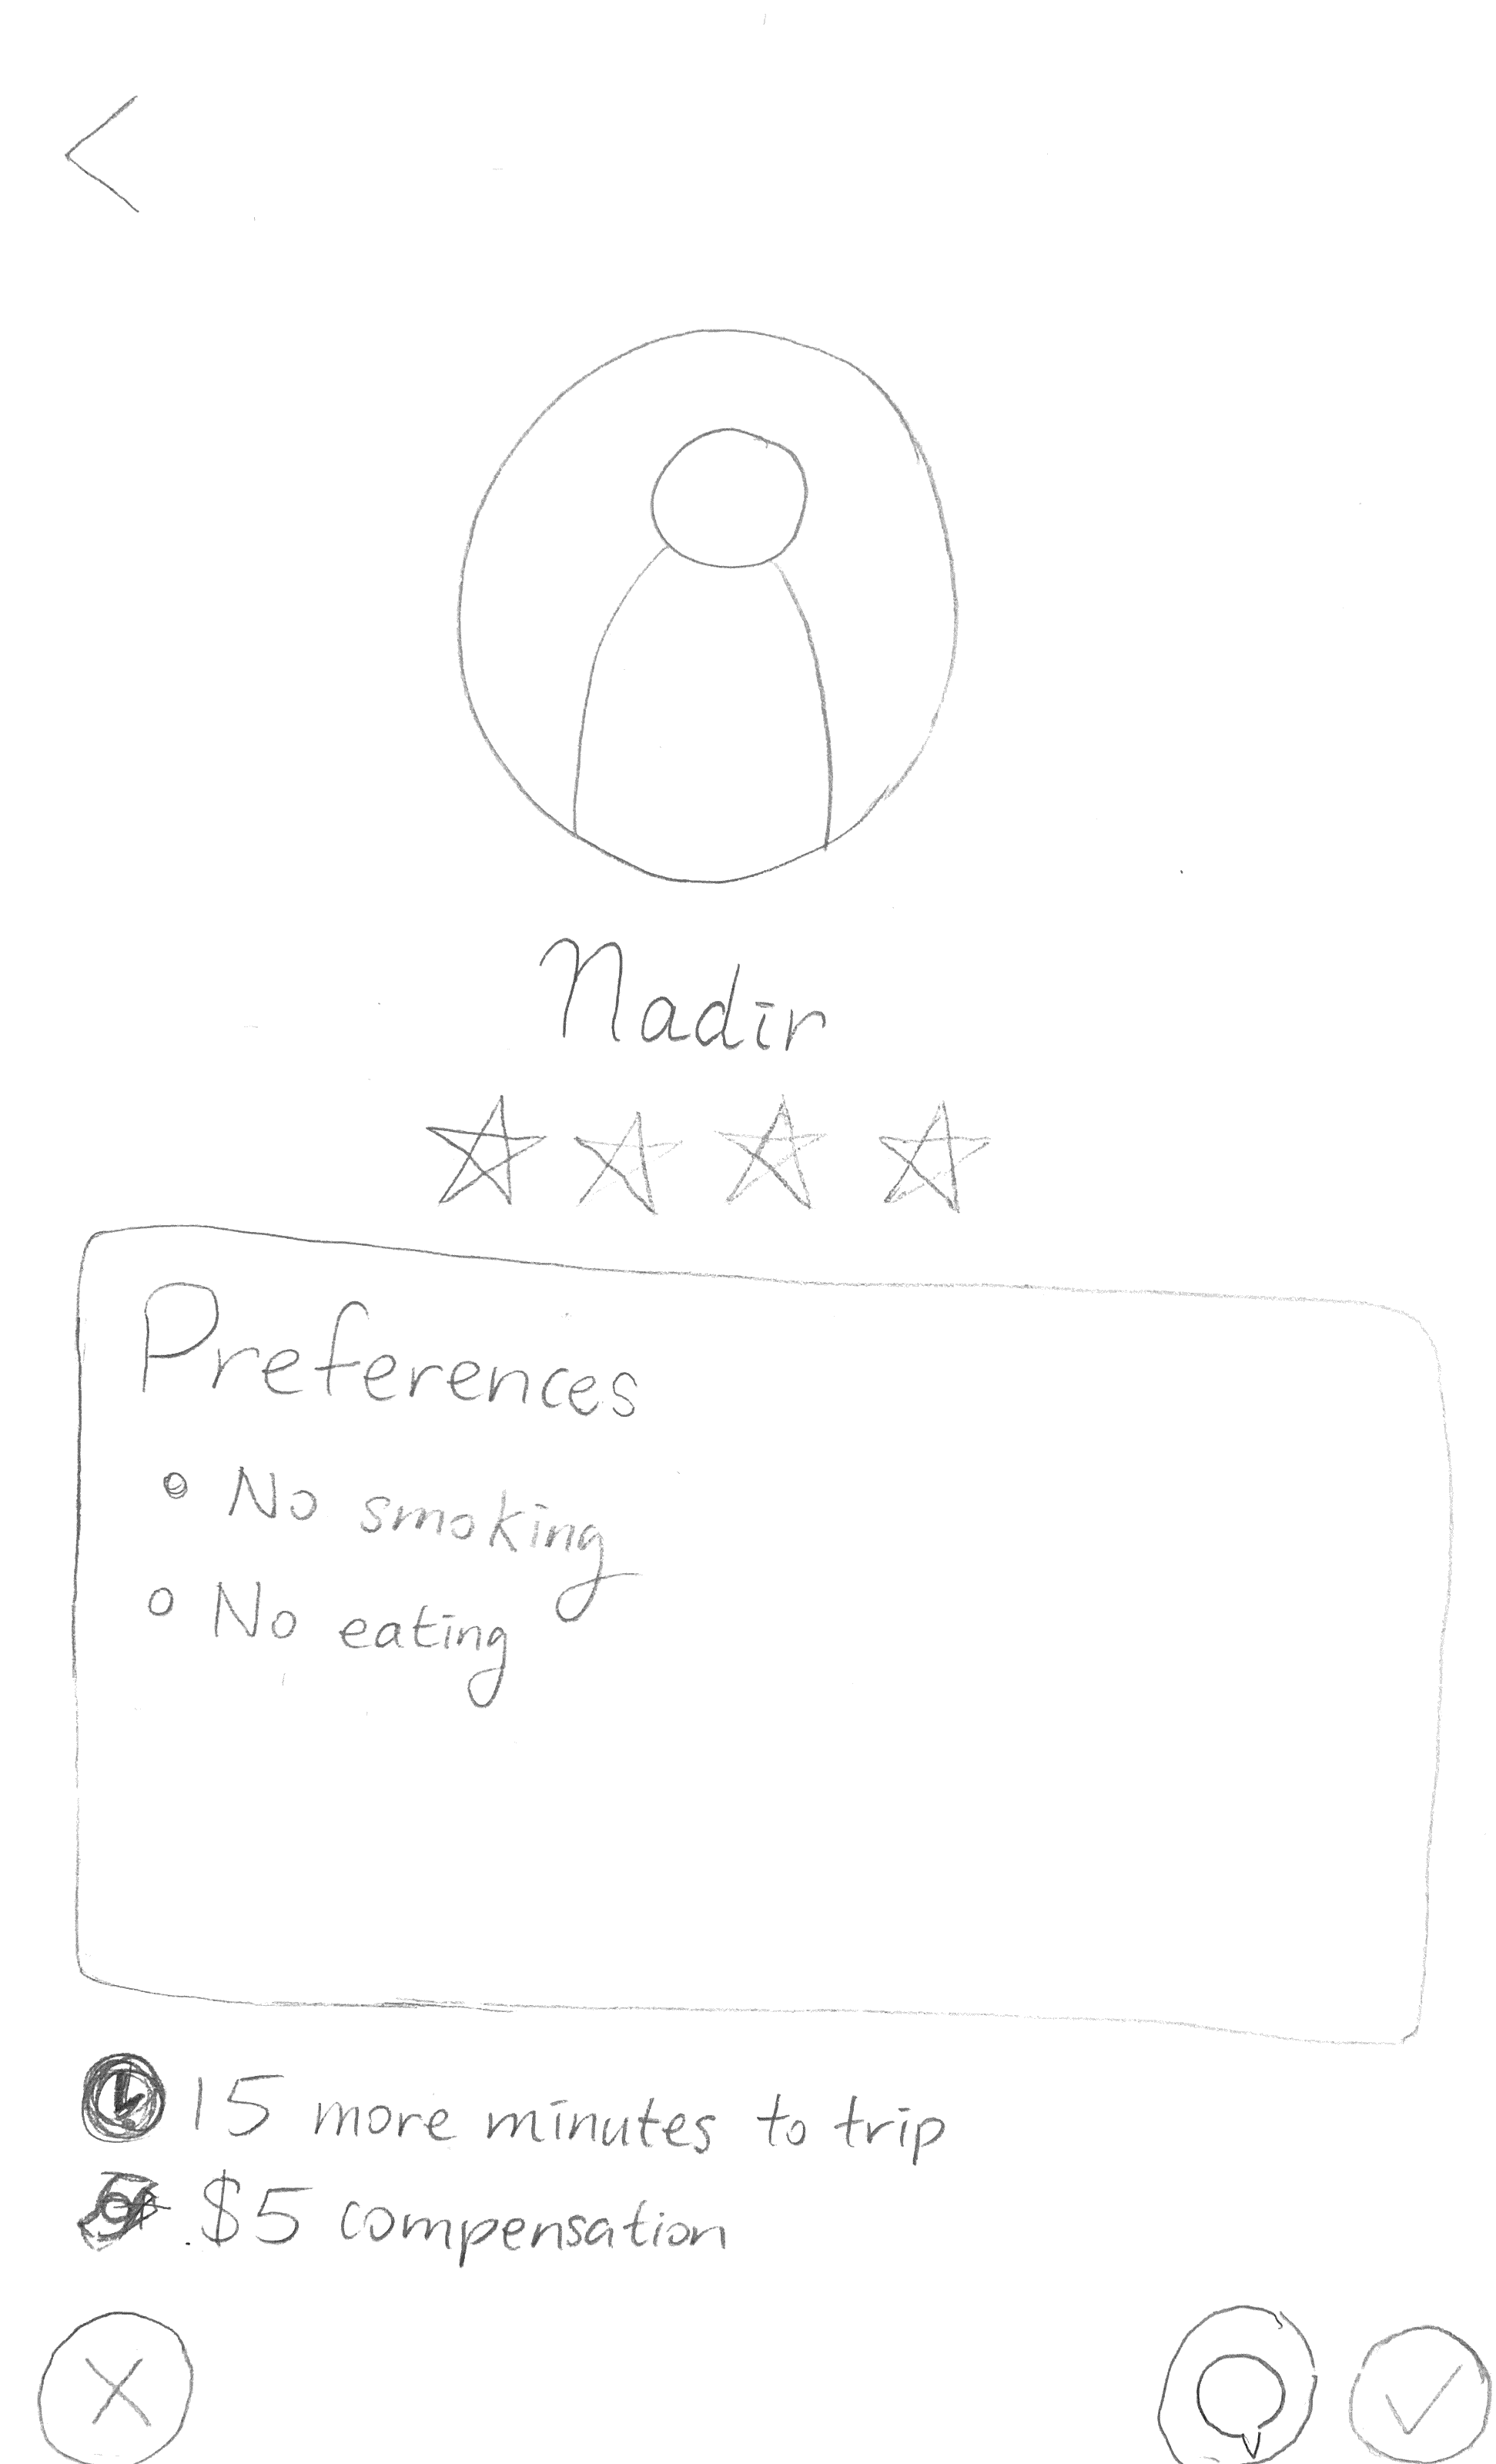 Nadir
Preferences
No smoking
No eating
15 more minutes to trip
$5 compensation